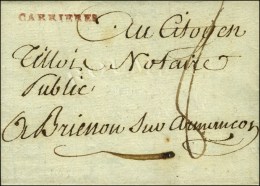 CARRIERES
Au Citoyen
Tillois Notaire
Public
A Brienon Sur armançon
8